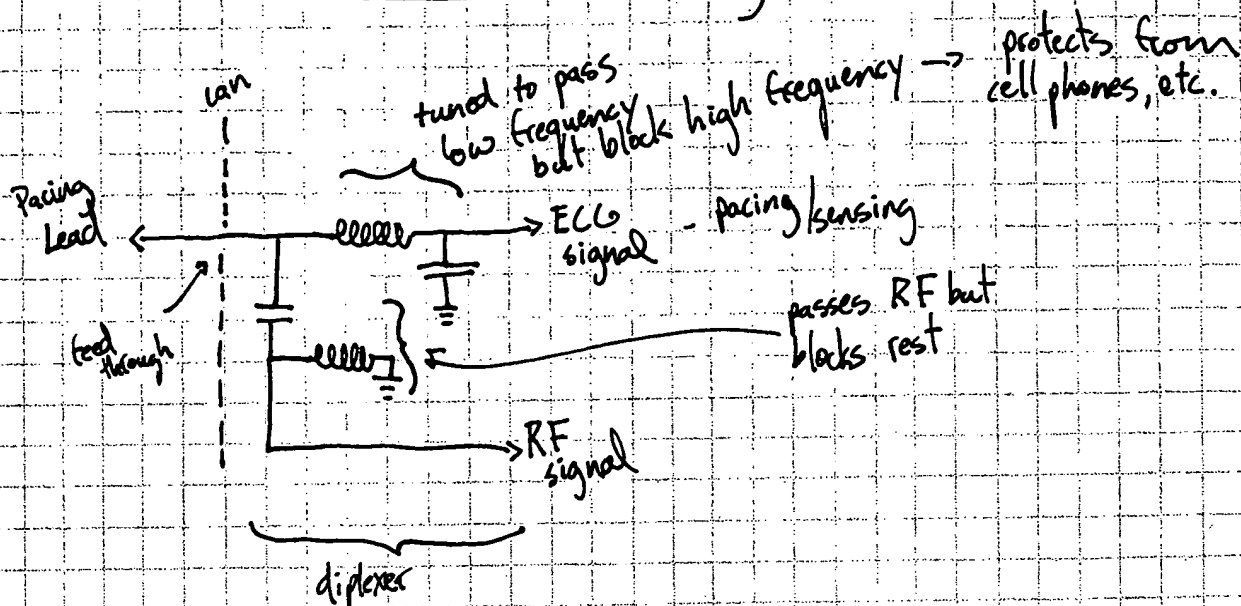 can
tuned to pass
low frequency
but block high frequency →
protects from
cell phones, etc.
Pacing
Lead
ECG
signal
- pacing/sensing
feed
through
passes RF but
blocks rest
RF
signal
diplexer